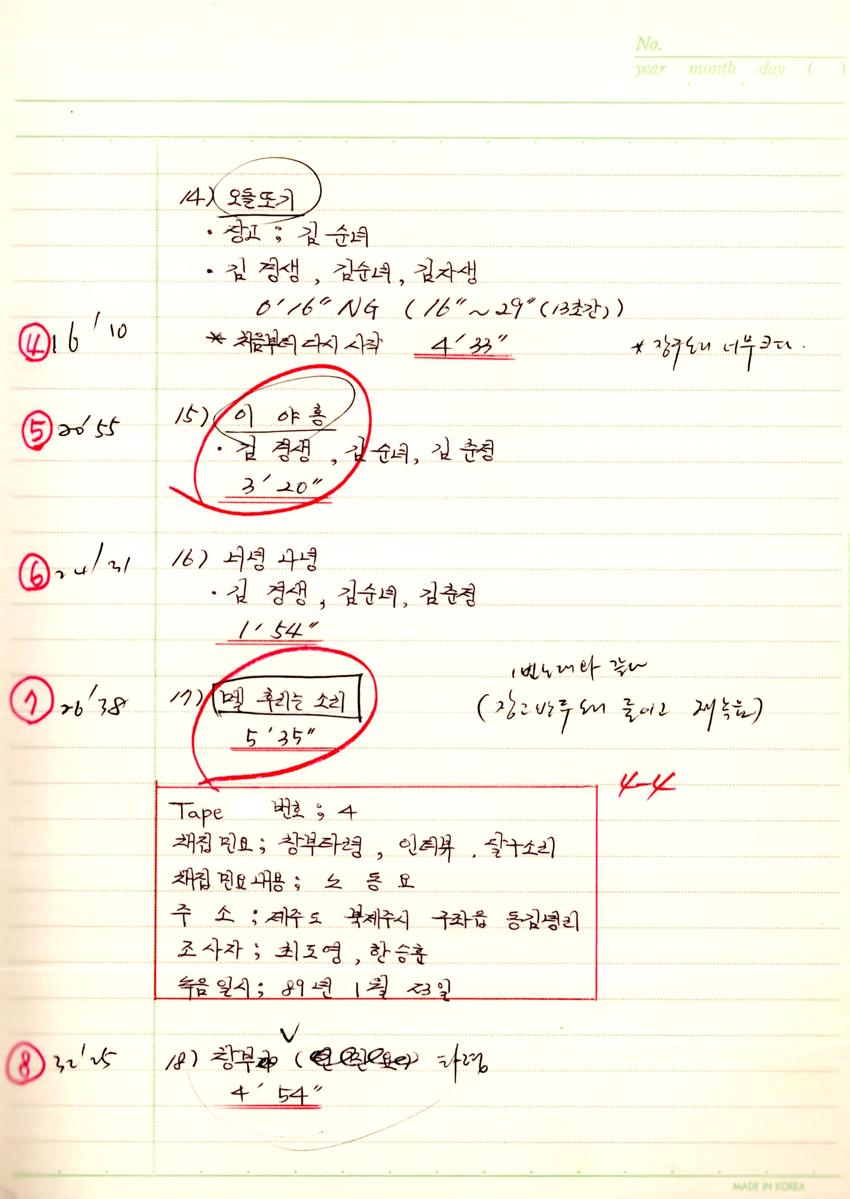 No.
year month day ( )
14) 오돌또기
· 장고 ; 김순녀
· 김경생, 김순녀, 김자생
0'16" NG (16"~29"(13초간))
④ 16'10 * 처음부터 다시 시작 4'33" * 장구소리 너무 크다.
⑤ 20'55 15) 이야홍
· 김경생, 김순녀, 김춘정
3'20"
⑥ 24'31 16) 서녕 사녕
· 김경생, 김순녀, 김춘정
1'54"
1번노래와 같다
⑦ 26'38 17) 멜 후리는 소리 (장고 줄이고 재녹음)
5'35"
4-4
Tape 번호 ; 4
채집민요 ; 창부타령, 인터뷰, 달구소리
채집민요내용 ; 노동요
주소 ; 제주도 북제주시 구좌읍 동김녕리
조사자 ; 최도영, 한승훈
녹음일시 ; 89년 1월 23일
⑧ 32'25 18) 창부 타령
4'54"
MADE IN KOREA